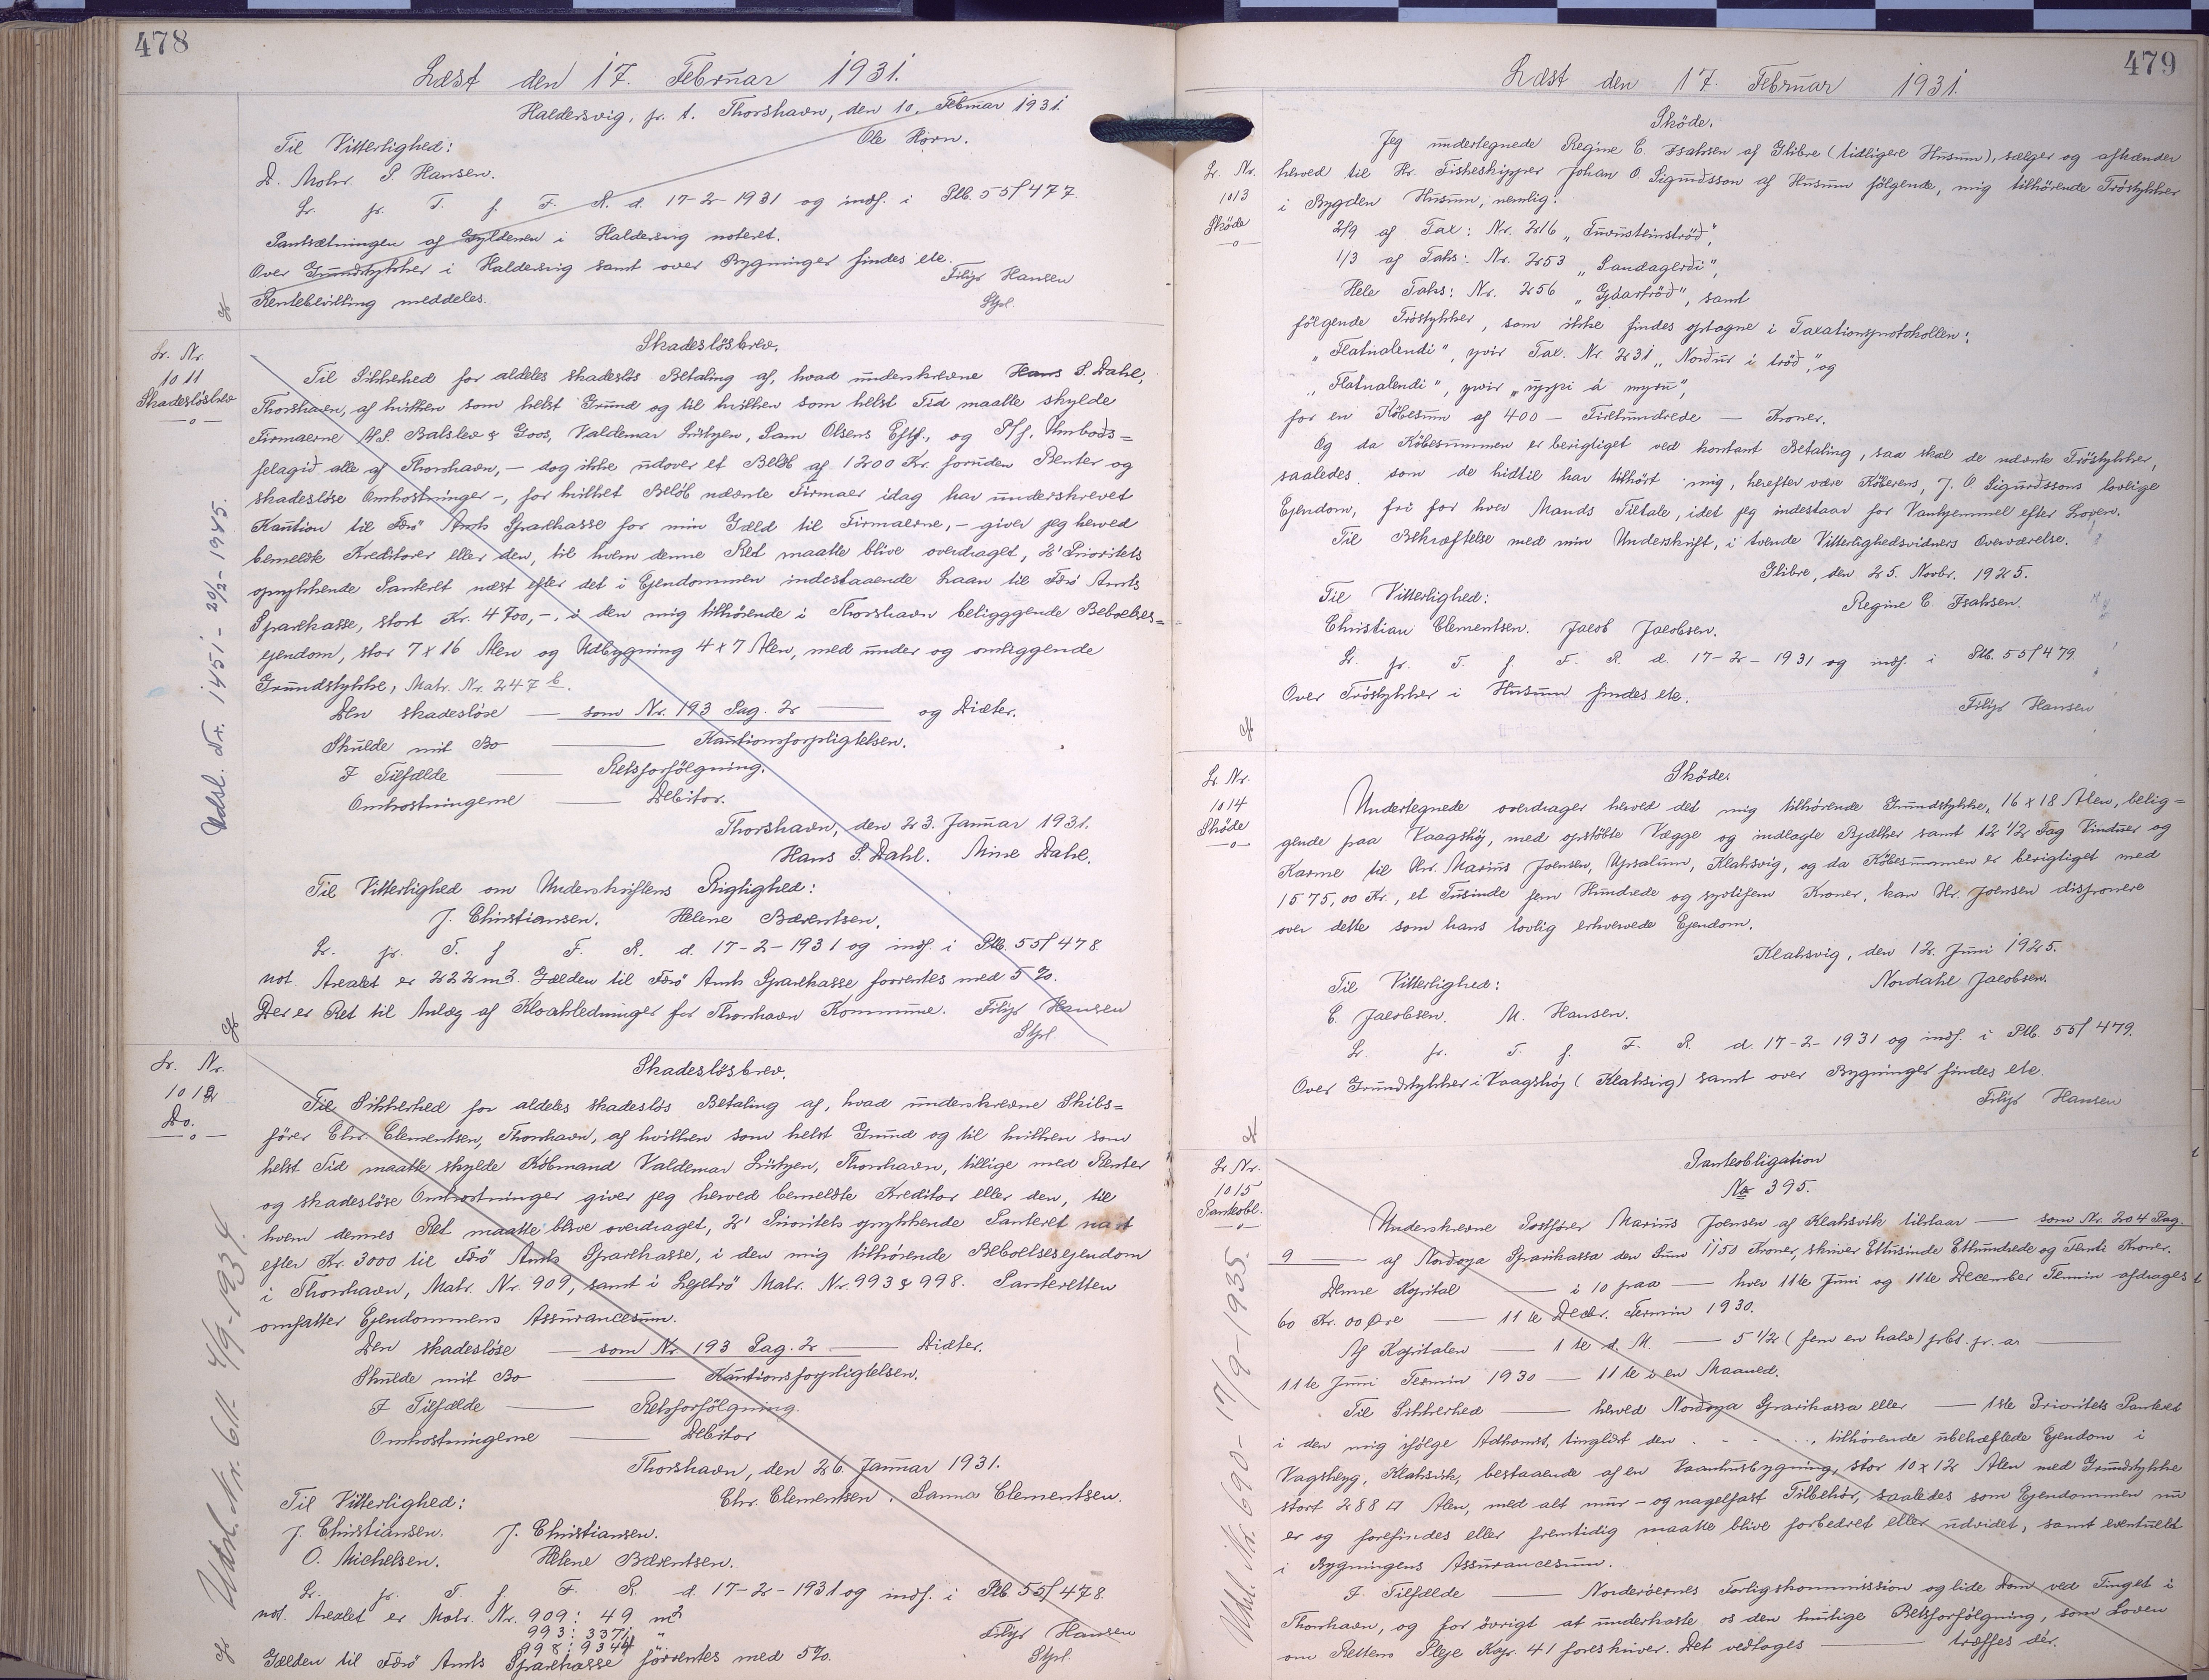 478
Læst den 17. Februar 1931.
Haldersvig, pr. t. Thorshavn, den 10. Februar 1931.
Ole Horn.
Til Vitterlighed:
D. Mohr. P. Hansen.
Lr. pr. T. f. F. R. d. 17-2-1931 og indf. i Ptb. 55f 477.
Pantsætningen af Gyldenen i Haldersvig noteret.
Over Grundstykker i Haldersvig samt over Bygninger findes ete.
Rentebevilling meddeles.
Filip Hansen
Stpl.
Lr. Nr.
1011
Skadesløsbrev
Udsl. Nr. 1451 - 20/2-1945.
Skadesløsbrev.
Til Sikkerhed for aldeles skadesløs Betaling af, hvad underskrevne Hans S. Dahl,
Thorshavn, af hvilken som helst Grund og til hvilken som helst Tid maatte skylde
Firmaerne A/S. Balslev & Goos, Valdemar Lützen, Sam Olsens Eftf., og P/f. Umboðs=
felagið alle af Thorshavn, - dog ikke udover et Beløb af 1200 Kr. foruden Renter og
skadesløse Omkostninger -, for hvilket Beløb nævnte Firmaer idag har underskrevet
Kaution til Færø Amts Sparekasse for min Gæld til Firmaerne, - giver jeg herved
bemeldte Kreditorer eller den, til hvem denne Ret maatte blive overdraget, 2' Prioritets
oprykkende Panteret næst efter det i Ejendommen indestaaende Laan til Færø Amts
Sparekasse, stort Kr. 4700,-, i den mig tilhørende i Thorshavn beligggende Beboelses=
ejendom, stor 7 x 16 Alen og Udbygning 4 x 7 Alen, med under og omliggende
Grundstykke, Matr. Nr. 247 b.
Den skadesløse — som Nr. 193 Pag. 2 — og Diæter.
Skulde mit Bo — Kautionsforpligtelsen.
I Tilfælde — Retsforfølgning.
Omkostningerne — Debitor.
Thorshavn, den 23. Januar 1931.
Hans S. Dahl. Mine Dahl.
Til Vitterlighed om Underskriftens Rigtighed:
J. Christiansen. Helene Bærentsen.
Lr. pr. T. f F. R. d. 17-2-1931 og indf. i Ptb. 55f 478
not. Arealet er 222 m2. Gælden til Færø Amts Sparekasse forrentes med 5 %.
Der er Ret til Anlæg af Kloakledninger for Thorshavn Kommune. Filip Hansen
Stpl.
Lr. Nr.
1012
Do.
Udsl. Nr. 611- 4/9-1934.
Skadesløsbrev.
Til Sikkerhed for aldeles skadesløs Betaling af, hvad underskrevne Skibs=
fører Chr. Clementsen, Thorshavn, af hvilken som helst Grund og til hvilken som
helst Tid maatte skylde Købmand Valdemar Lützen, Thorshavn, tillige med Renter
og skadesløse Omkostninger giver jeg herved bemeldte Kreditor eller den, til
hvem dennes Ret maatte blive overdraget, 2' Prioritets oprykkende Panteret næst
efter Kr. 3000 til Færø Amts Sparekasse, i den mig tilhørende Beboelsesejendom
i Thorshavn, Matr. Nr. 909, samt i Lejetrø Matr. Nr. 993 & 998. Panteretten
omfatter Ejendommens Assurancesum.
Den skadesløse — som Nr. 193 Pag. 2 — Diæter.
Skulde mit Bo — Kautionsforpligtelsen.
I Tilfælde — Retsforfølgning.
Omkostningerne — Debitor
Thorshavn, den 26. Januar 1931.
Chr. Clementsen. Sanna Clementsen.
Til Vitterlighed:
J. Christiansen. J. Christiansen.
O. Michelsen. Helene Bærentsen.
Lr. pr. T. f F. R. d. 17-2-1931 og indf. i Ptb 55f 478.
not. Arealet er Matr. Nr. 909: 49 m2
993: 3371 "
998: 9344
Gælden til Færø Amts Sparekasse forrentes med 5%.
Filip Hansen
Stpl.
479
Læst den 17. Februar 1931.
Lr. Nr.
1013
Skøde
Skøde.
Jeg undertegnede Regine E. Isaksen af Glibre (tidligere Husum), sælger og afhænder
herved til Hr. Fiskeskipper Johan O. Sigurdsson af Husum følgende, mig tilhørende Trøstykker
i Bygden Husum, nemlig:
2/9 af Tax: Nr. 216 „Tuvusteinstrøð",
1/3 af Taks: Nr. 253 „Sandagerði",
Hele Taks: Nr. 256 „Gjáartrøð", samt
følgende Trøstykker, som ikke findes optagne i Taxationsprotokollen:
„Flatnalendi", yvir Tax. Nr. 231 „Norður i trøð", og
„Flatnalendi", yvir „uppi á myru",
for en Købesum af 400 — Firehundrede — Kroner.
Og da Købesummen er berigtiget ved kontant Betaling, saa skal de nævnte Trøstykker,
saaledes som de hidtil har tilhørt mig, herefter være Køberens, J. O Sigurdssons lovlige
Ejendom, fri for hver Mands Tiltale, idet jeg indestaar for Vanhjemmel efter Loven.
Til Bekræftelse med min Underskrift, i tvende Vitterlighedsvidners Overværelse.
Glibre, den 25. Novbr. 1925.
Regine E. Isaksen.
Til Vitterlighed:
Christian Clementsen. Jacob Jacobsen.
Lr. pr. T. f. F. R. d. 17-2-1931 og indf. i Ptb. 55f 479.
Over Trøstykker i Husum findes ete.
Filip Hansen
Lr Nr.
1014
Skøde
Skøde.
Undertegnede overdrager herved det mig tilhørende Grundstykke, 16 x 18 Alen, belig=
gende paa Vaagshøj, med opstøbte Vægge og indlagte Bjælker samt 12 1/2 Fag Vinduer og
Karme til Hr. Marius Joensen, Upsalum, Klaksvig, og da Købesummen er berigtiget med
1575,00 Kr., et Tusinde fem Hundrede og syvtifem Kroner, kan Hr. Joensen disponere
over dette som hans lovlig erhvervede Ejendom.
Klaksvig, den 12. Juni 1925.
Nordahl Jacobsen.
Til Vitterlighed:
C. Jacobsen. M. Hansen.
Lr. pr. T. f. F. R. d. 17-2-1931 og indf. i Ptb. 55f 479.
Over Grundstykker i Vaagshøj (Klaksvig) samt over Bygninger findes ete.
Filip Hansen
Lr Nr.
1015
Panteobl.
Udsl. Nr. 690- 17/9-1935.
Panteobligation
No 395.
Underskrevne Postfører Marius Joensen af Klaksvik tilstaar — som Nr. 204 Pag.
9 — af Norðoya Sparikassa den Sum 1150 Kroner, skriver Ettusinde Ethundrede og Femti Kroner.
Denne Kapital — i 10 paa — hver 11te Juni og 11te December Termin afdrages
60 Kr. 00 Øre — 11 te Decbr. Termin 1930.
Af Kapitalen — 1 te d. M. — 5 1/2 (fem en halv) prct. pr. a. —
11te Juni Termin 1930 — 11 te i en Maaned.
Til Sikkerhed — herved Norðoya Sparikassa eller — 1ste Prioritets Panteret
i den mig ifølge Adkomst, tinglæst den . - - . . , tilhørende ubehæftede Ejendom i
Vagsheyg, Klaksvik, bestaaende af en Vaanhusbygning, stor 10 x 12 Alen med Grundstykke
stort 288 □ Alen, med alt mur- og nagelfast Tilbehør, saaledes som Ejendommen nu
er og forefindes eller fremtidig maatte blive forbedret eller udvidet, samt eventuelt
i Bygningens Assurancesum.
I Tilfælde — Norderøernes Forligskommisssion og lide Dom ved Tinget i
Thorshavn, og for øvrigt at underkaste os den hurtige Retsforfølgning, som Loven
om Rettens Pleje Kap. 41 foreskriver. Det vedtages — træffes dér.